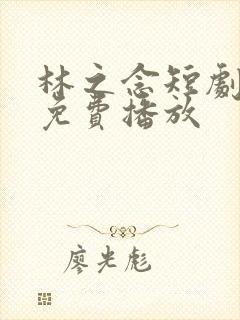 林之念短劇
免費播放
廖光彪